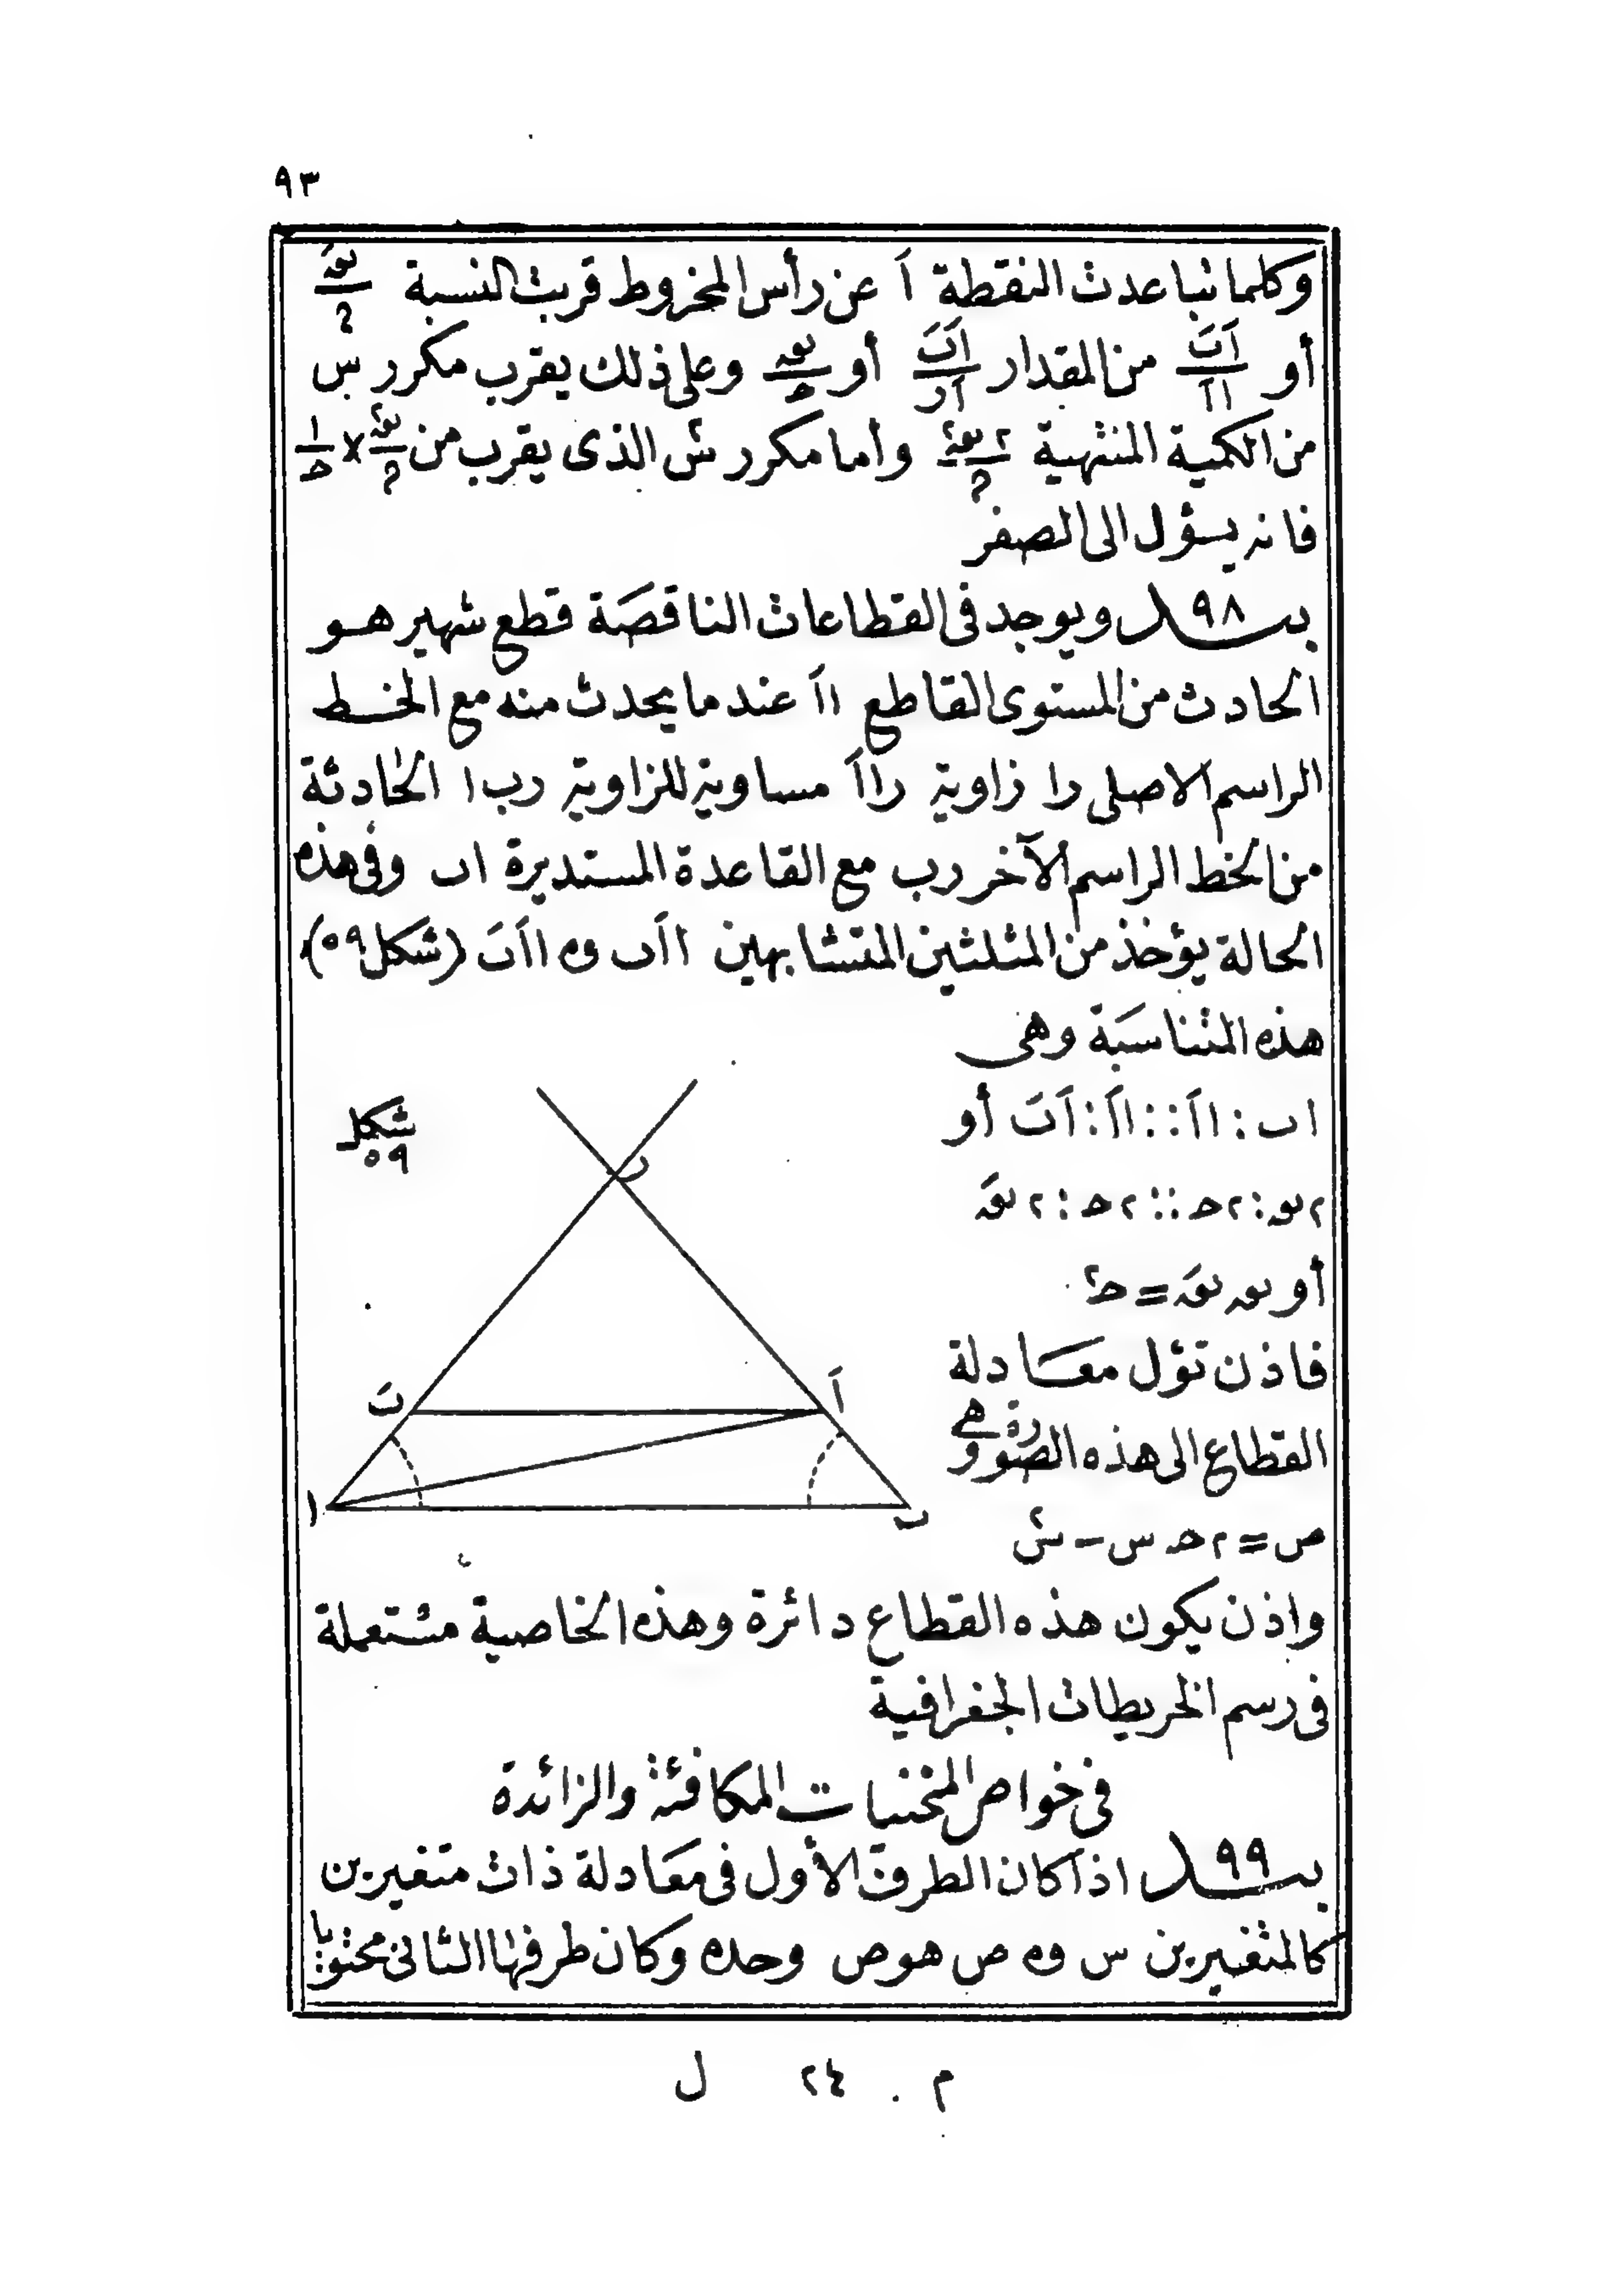 ٩٣
وكلما تباعدت النقطة اَ عن رأس المخروط قربت النسبة نَق/م
أو اَبَ/ااَ من المقدار اَبَ/اَر أو نق/ح وعلى ذلك يقرب مكرر س
من الكمية المنتهية ٢نق٢/م وأما مكرر س٢ الذى يقرب من نق٢/م × ١/ح
فانه يؤل الى الصفر
بند ٩٨ ويوجد فى القطاعات الناقصة قطع شهير هو
الحادث من المستوى القاطع ااَ عند ما يحدث منه مع الخط
الراسم الاصلى را زاوية رااَ مساوية للزاوية رب ا الحادثة
من الخط الراسم الآخر رب مع القاعدة المستديرة اب وفى هذه
الحالة يؤخذ من المثلثين المتشابهين ااَب و ااَبَ (شكل ٥٩)
هذه المتناسبة وهى
اب : ااَ :: ااَ : اَبَ أو
شكل ٥٩
ر
٢نق : ٢ح :: ٢ح : ٢نَق
أو نق نَق = ح٢
فاذن تؤل معادلة
بَ
اَ
القطاع الى هذه الصورة وهى
ا
ب
ص٢ = ٢ح س - س٢
واذن يكون هذه القطاع دائرة وهذه الخاصية مستعملة
فى رسم الخريطات الجغرافية
فى خواص المنحنيات المكافئة والزائدة
بند ٩٩ اذا كان الطرف الأول فى معادلة ذات متغيرين
كالمتغيرين س و ص هو ص وحده وكان طرفها الثانى محتويا
م ٢٤ ل